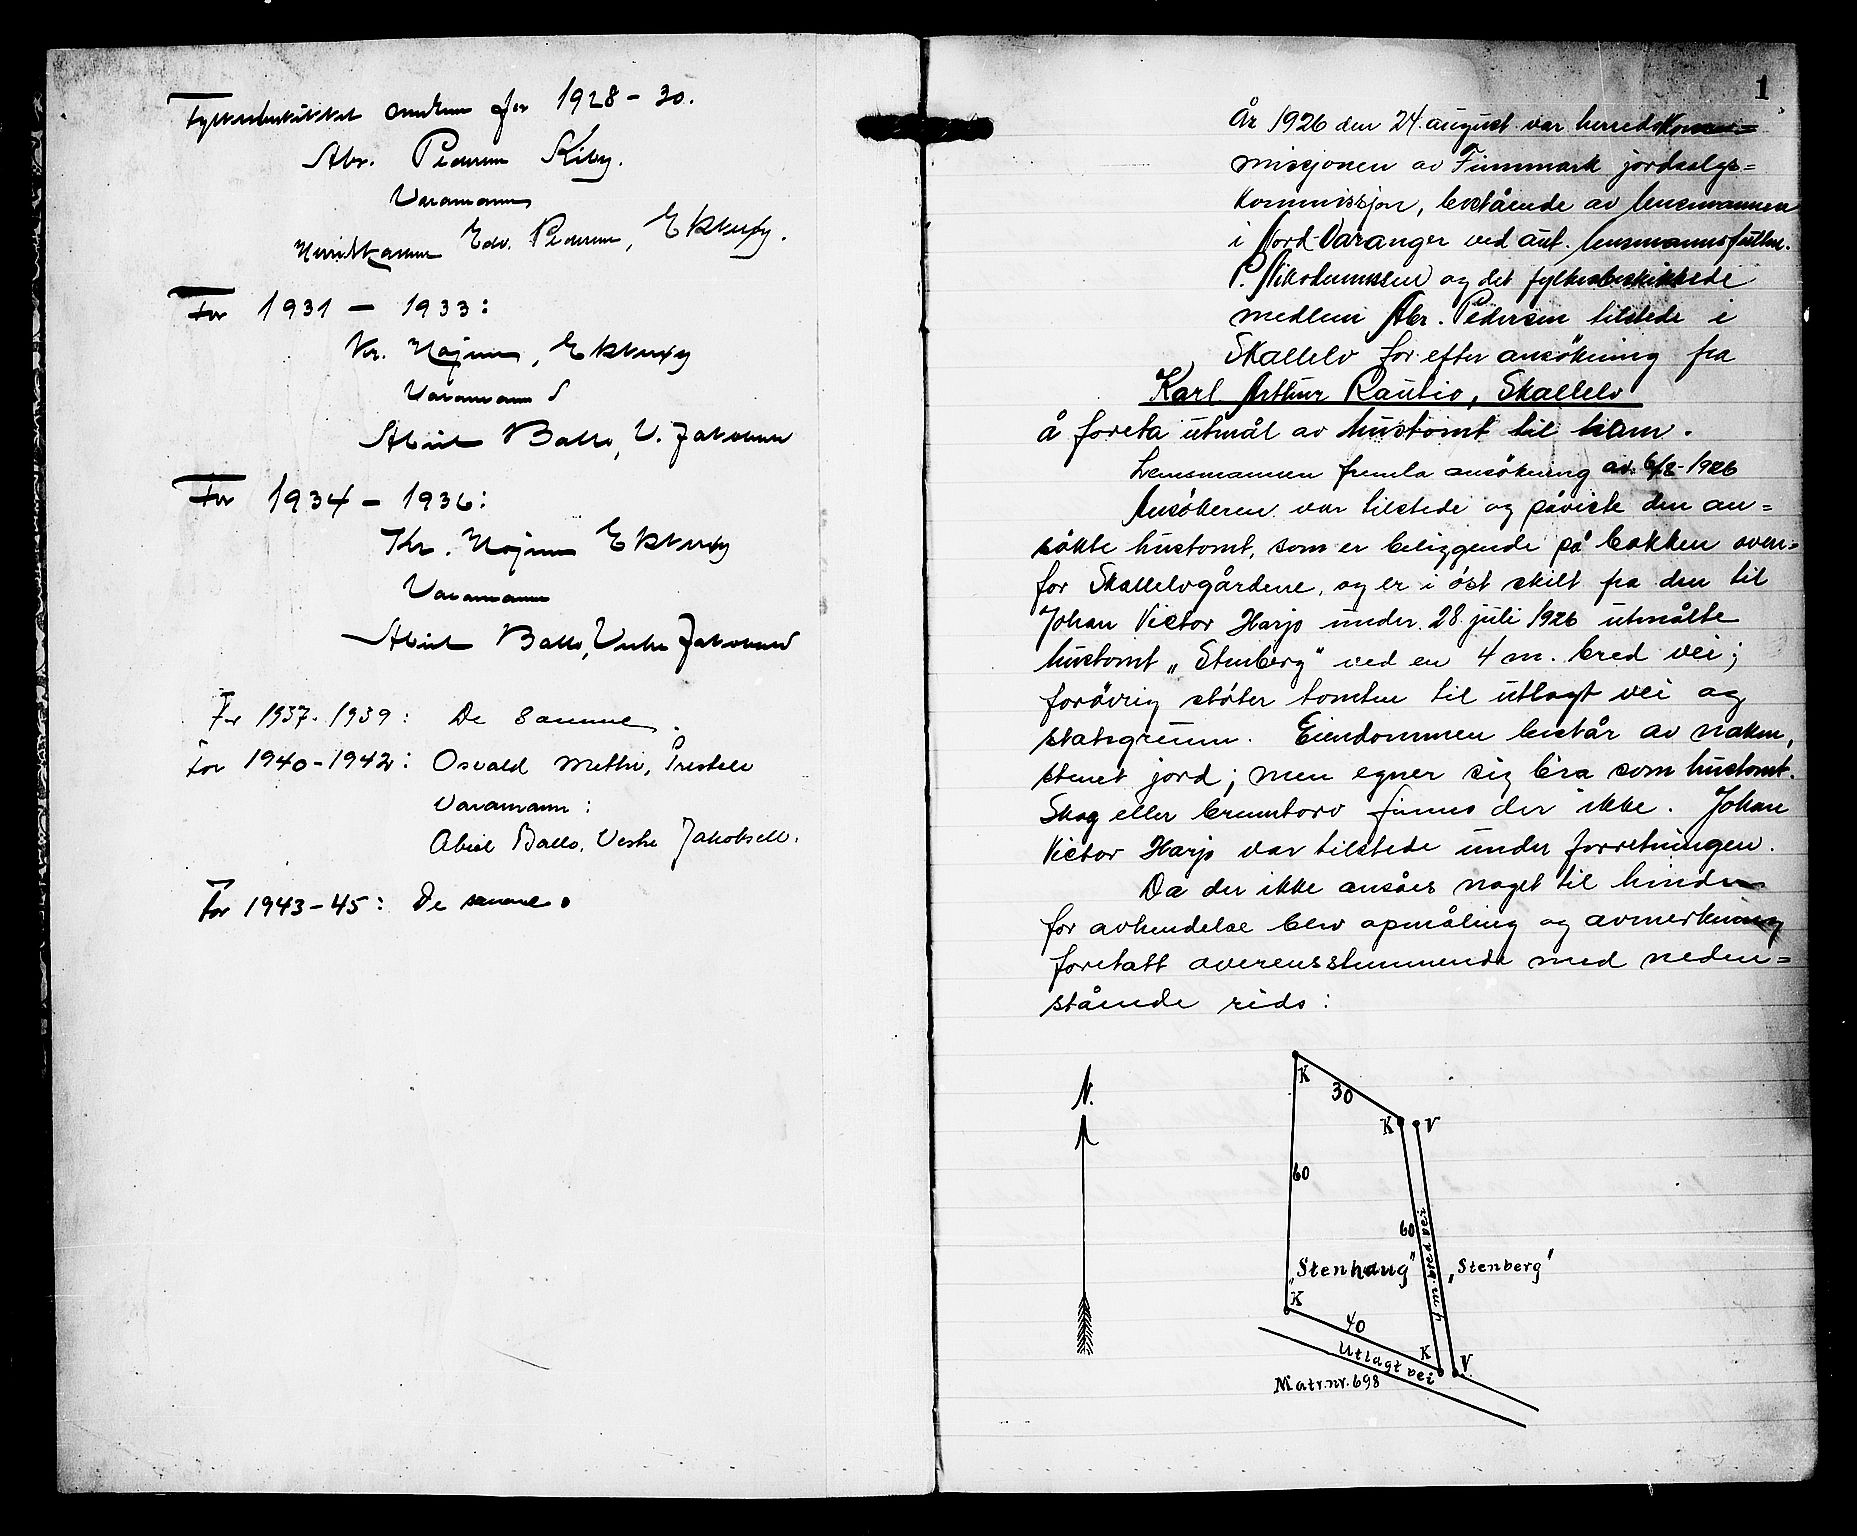 Fylkesbeskikket medlem for 1928 – 30.
Abr. Pedersen Kiby.
Varamann
Edv. Pedersen, Ekkerøy.
For 1931 – 1933:
Kr. Ekkerøy
Varamann
Abiel Ballo, V. Jakobsen
For 1934 – 1936:
Kr. Ekkerøy
Varamann
Abiel Ballo, Jakobsen
For 1937-1939: De samme.
For 1940-1942: Osvald Methi,
Varamann:
Abiel Ballo, Jakobselv.
For 1943-45: De samme.
1
År 1926 den 24. august var herredskom=
misjonen av Finnmark jordsalgs=
kommissjon, bestående av lensmannen
i Nord-Varanger ved aut. lensmannsfullm.
P. Nikodemussen og det fylkesbeskikkede
medlem Abr. Pedersen tilstede i
Skallelv for efter ansökning fra
Karl Arthur Rautio, Skallelv
å foreta utmål av hustomt til ham.
Lensmannen fremla ansökning av 6/8-1926
Ansökeren var tilstede og påviste den an=
sökte hustomt, som er beliggende på bakken oven=
for Skallelvgårdene, og er i öst skilt fra den til
Johan Victor Harjo under 28 juli 1926 utmålte
hustomt „Stenberg" ved en 4 m. bred vei;
forövrig stöter tomten til utlagt vei og
statsgrunn. Eiendommen består av naken,
stenet jord; men egner sig bra som hustomt.
Skog eller brenntorv finnes der ikke. Johan
Victor Harjo var tilstede under forretningen.
Da der ikke ansåes noget til hinder
for avhendelse blev opmåling og avmerkning
foretatt overensstemmende med neden=
stående rids:
N.
K
30
K V
60
60
4 m. bred vei
„Stenhaug" „Stenberg"
K
40
K V.
Utlagt vei
Matr.nr. 698